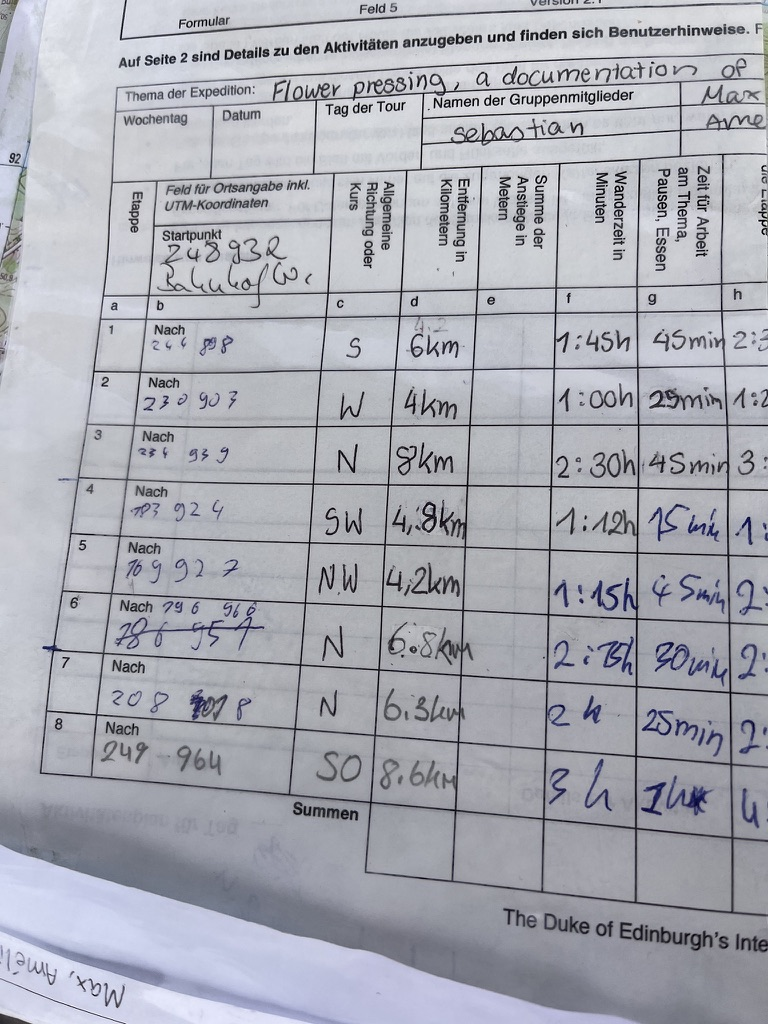 Formular
Feld 5
Auf Seite 2 sind Details zu den Aktivitäten anzugeben und finden sich Benutzerhinweise. F
Thema der Expedition: Flower pressing, a documentation of
Wochentag Datum Tag der Tour Namen der Gruppenmitglieder Max
sebastian
Etappe
Feld für Ortsangabe inkl.
UTM-Koordinaten
Startpunkt
Bahnhof
Allgemeine
Richtung oder
Kurs
Entfernung in
Kilometern
Summe der
Anstiege in
Metern
Wanderzeit in
Minuten
Zeit für Arbeit
am Thema,
Pausen, Essen
die Etappe
a b c d e f g h
4.2
1 Nach 244 898 S 6km 1:45h 45min 2:3
2 Nach 230 903 W 4km 1:00h 25min 1:2
3 Nach 234 939 N 8km 2:30h 45min 3:
4 Nach 924 SW 4,8km 1:12h 15min 1:
5 Nach 169 927 NW 4,2km 1:15h 45min 2:
6 Nach 196 966 N 6.8km 30min 2:
786 957
7 Nach 208 N 6.3km 2h 25min 2:
8 Nach 249 964 SO 8.6km 3h 1h 4:
Summen
The Duke of Edinburgh's Inte
Max, Améli
92